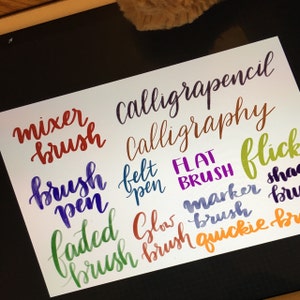 calligrapencil
mixer
brush
calligraphy
flick
brush
pen
felt
pen
FLAT
BRUSH
faded
brush
Glow
brush
marker
brush
quickie